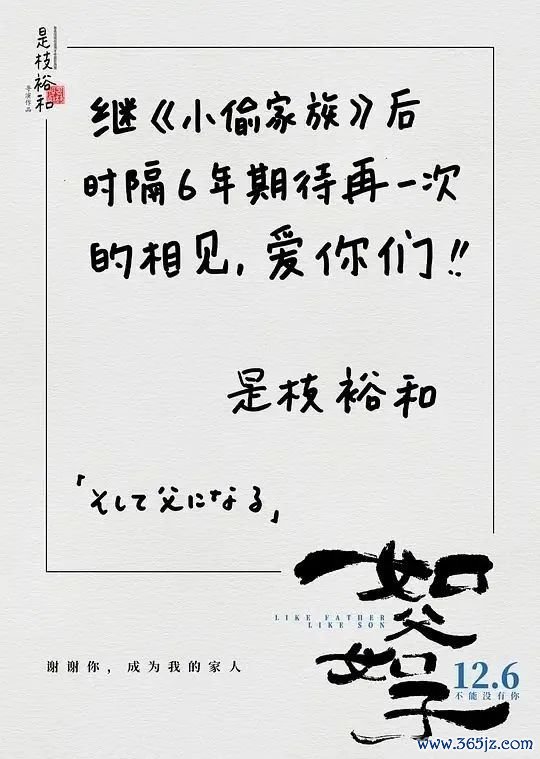 是枝裕和
导演作品
继《小偷家族》后
时隔6年期待再一次
的相见,爱你们!!
是枝裕和
「そして父になる」
如父如子
LIKE FATHER
LIKE SON
谢谢你，成为我的家人
12.6
不能没有你
www.365jz.com